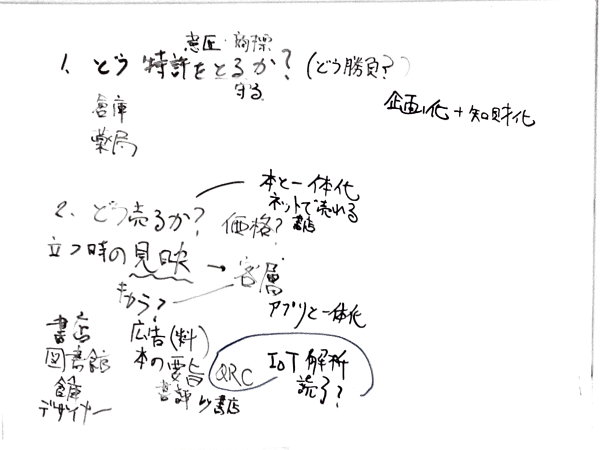 意匠・商標
1. どう特許をとるか? (どう勝負?)
守る
企画化+知財化
倉庫
薬局
本と一体化
ネットで売れる
書店
2. どう売るか? 価格?
立つ時の見映 → 客層
キャラ?
アプリと一体化
書店
図書館
倉庫
デザイナー
広告(料)
本の要旨
書評 by 書店
QRC
IoT解析
読了?